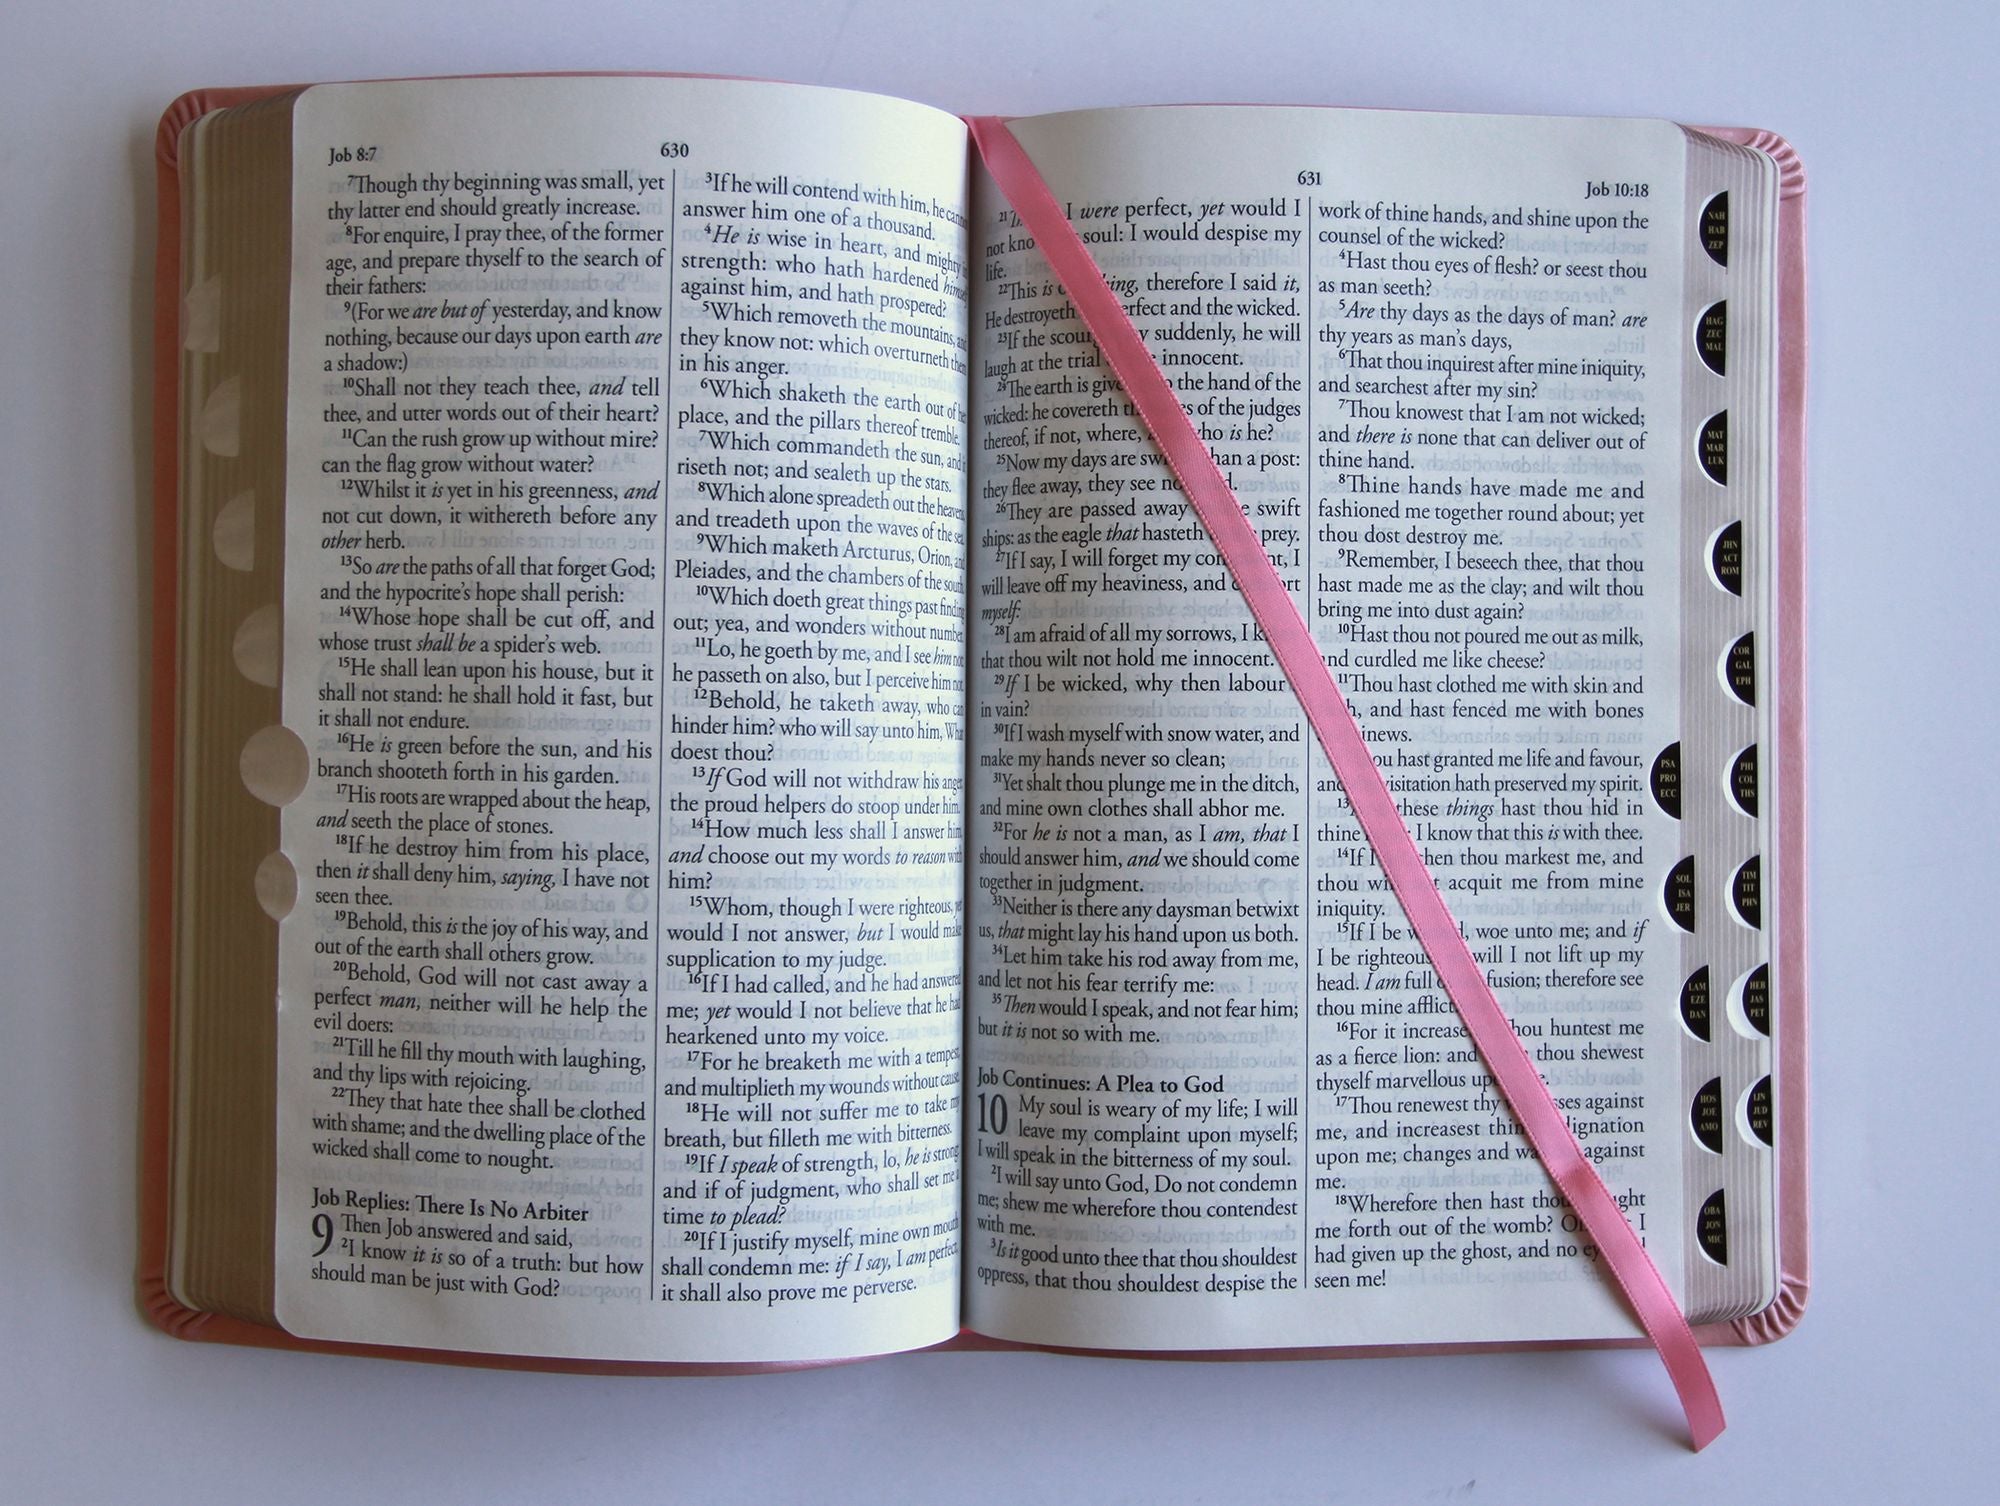 Job 8:7
630
7Though thy beginning was small, yet
thy latter end should greatly increase.
8For enquire, I pray thee, of the former
age, and prepare thyself to the search of
their fathers:
9(For we are but of yesterday, and know
nothing, because our days upon earth are
a shadow:)
10Shall not they teach thee, and tell
thee, and utter words out of their heart?
11Can the rush grow up without mire?
can the flag grow without water?
12Whilst it is yet in his greenness, and
not cut down, it withereth before any
other herb.
13So are the paths of all that forget God;
and the hypocrite's hope shall perish:
14Whose hope shall be cut off, and
whose trust shall be a spider's web.
15He shall lean upon his house, but it
shall not stand: he shall hold it fast, but
it shall not endure.
16He is green before the sun, and his
branch shooteth forth in his garden.
17His roots are wrapped about the heap,
and seeth the place of stones.
18If he destroy him from his place,
then it shall deny him, saying, I have not
seen thee.
19Behold, this is the joy of his way, and
out of the earth shall others grow.
20Behold, God will not cast away a
perfect man, neither will he help the
evil doers:
21Till he fill thy mouth with laughing,
and thy lips with rejoicing.
22They that hate thee shall be clothed
with shame; and the dwelling place of the
wicked shall come to nought.
Job Replies: There Is No Arbiter
9 Then Job answered and said,
2I know it is so of a truth: but how
should man be just with God?
3If he will contend with him, he
answer him one of a thousand.
4He is wise in heart, and mighty
strength: who hath hardened
against him, and hath prospered?
5Which removeth the mountains,
they know not: which overturneth
in his anger.
6Which shaketh the earth out of
place, and the pillars thereof tremble.
7Which commandeth the sun, and
riseth not; and sealeth up the stars.
8Which alone spreadeth out the
and treadeth upon the waves of the
9Which maketh Arcturus, Orion,
Pleiades, and the chambers of the
10Which doeth great things past
out; yea, and wonders without
11Lo, he goeth by me, and I see him
he passeth on also, but I perceive him
12Behold, he taketh away, who
hinder him? who will say unto him,
doest thou?
13If God will not withdraw his
the proud helpers do stoop under him.
14How much less shall I answer him,
and choose out my words to reason with
him?
15Whom, though I were righteous,
would I not answer, but I would
supplication to my judge.
16If I had called, and he had answered
me; yet would I not believe that he had
hearkened unto my voice.
17For he breaketh me with a tempest,
and multiplieth my wounds without
18He will not suffer me to take
breath, but filleth me with bitterness.
19If I speak of strength, lo, he is
and if of judgment, who shall set me
time to plead?
20If I justify myself, mine own mouth
shall condemn me: if I say, I am perfect,
it shall also prove me perverse.
631
Job 10:18
21 I were perfect, yet would I
not soul: I would despise my
life.
22This is therefore I said it,
He destroyeth and the wicked.
23If the suddenly, he will
laugh at the trial innocent.
24The earth is the hand of the
wicked: he covereth of the judges
thereof, if not, where, who is he?
25Now my days are than a post:
they flee away, they see
26They are passed away swift
ships: as the eagle that hasteth prey.
27If I say, I will forget my I
will leave off my heaviness, and
myself:
28I am afraid of all my sorrows, I
that thou wilt not hold me innocent.
29If I be wicked, why then labour
in vain?
30If I wash myself with snow water, and
make my hands never so clean;
31Yet shalt thou plunge me in the ditch,
and mine own clothes shall abhor me.
32For he is not a man, as I am, that I
should answer him, and we should come
together in judgment.
33Neither is there any daysman betwixt
us, that might lay his hand upon us both.
34Let him take his rod away from me,
and let not his fear terrify me:
35Then would I speak, and not fear him;
but it is not so with me.
Job Continues: A Plea to God
10 My soul is weary of my life; I will
leave my complaint upon myself;
I will speak in the bitterness of my soul.
2I will say unto God, Do not condemn
me; shew me wherefore thou contendest
with me.
3Is it good unto thee that thou shouldest
oppress, that thou shouldest despise the
work of thine hands, and shine upon the
counsel of the wicked?
4Hast thou eyes of flesh? or seest thou
as man seeth?
5Are thy days as the days of man? are
thy years as man's days,
6That thou inquirest after mine iniquity,
and searchest after my sin?
7Thou knowest that I am not wicked;
and there is none that can deliver out of
thine hand.
8Thine hands have made me and
fashioned me together round about; yet
thou dost destroy me.
9Remember, I beseech thee, that thou
hast made me as the clay; and wilt thou
bring me into dust again?
10Hast thou not poured me out as milk,
and curdled me like cheese?
11Thou hast clothed me with skin and
and hast fenced me with bones
hast granted me life and favour,
visitation hath preserved my spirit.
13 these things hast thou hid in
thine I know that this is with thee.
14If I thou markest me, and
thou acquit me from mine
iniquity.
15If I be woe unto me; and if
I be will I not lift up my
head. I am full therefore see
thou mine
16For it thou huntest me
as a fierce lion: and thou shewest
thyself marvellous
17Thou renewest thy against
me, and increasest
upon me; changes and against
me.
18Wherefore then hast
me forth out of the womb? I
had given up the ghost, and no
seen me!
NAH
HAB
ZEP
HAG
ZEC
MAL
MAT
MAR
LUK
JHN
ACT
ROM
COR
GAL
EPH
PSA
PRO
ECC
PHI
COL
THS
SOL
ISA
JER
TIM
TIT
PHN
LAM
EZE
DAN
HEB
JAS
PET
HOS
JOE
AMO
IJN
JUD
REV
OBA
JON
MIC